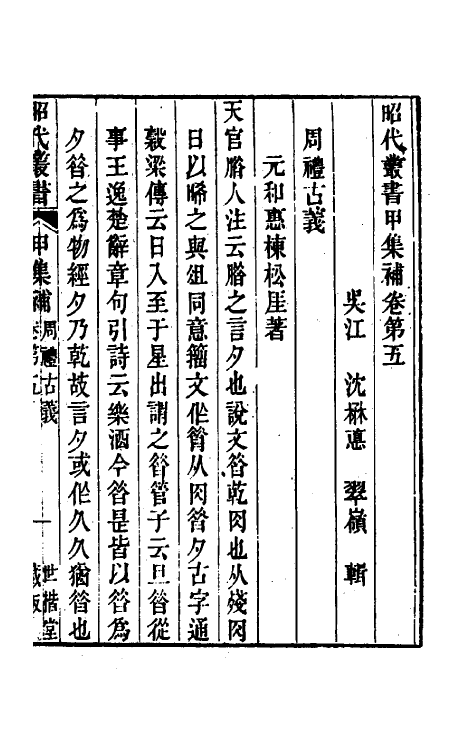 昭代叢書甲集補卷第五
吳江　沈楙悳　翠嶺　輯
周禮古義
元和惠棟松厓著
天官腊人注云腊之言夕也說文㫺乾肉也从殘肉
日以晞之與俎同意籀文作𦠡从肉㫺夕古字通
穀梁傳云日入至于星出謂之㫺管子云旦㫺從
事王逸楚辭章句引詩云樂酒今㫺是皆以㫺爲
夕㫺之爲物經夕乃乾故言夕或作久久猶㫺也
昭代叢書
甲集補
周禮古義
卷第五
一
世楷堂
藏板